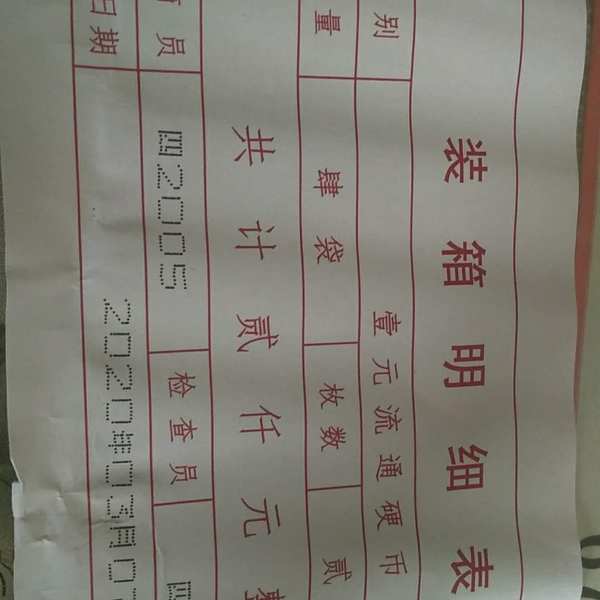 装箱明细表
别 壹元流通硬币
量 肆袋 枚数 贰
共计贰仟元整
员 四2005 检查员 四
日期 2020年03月0